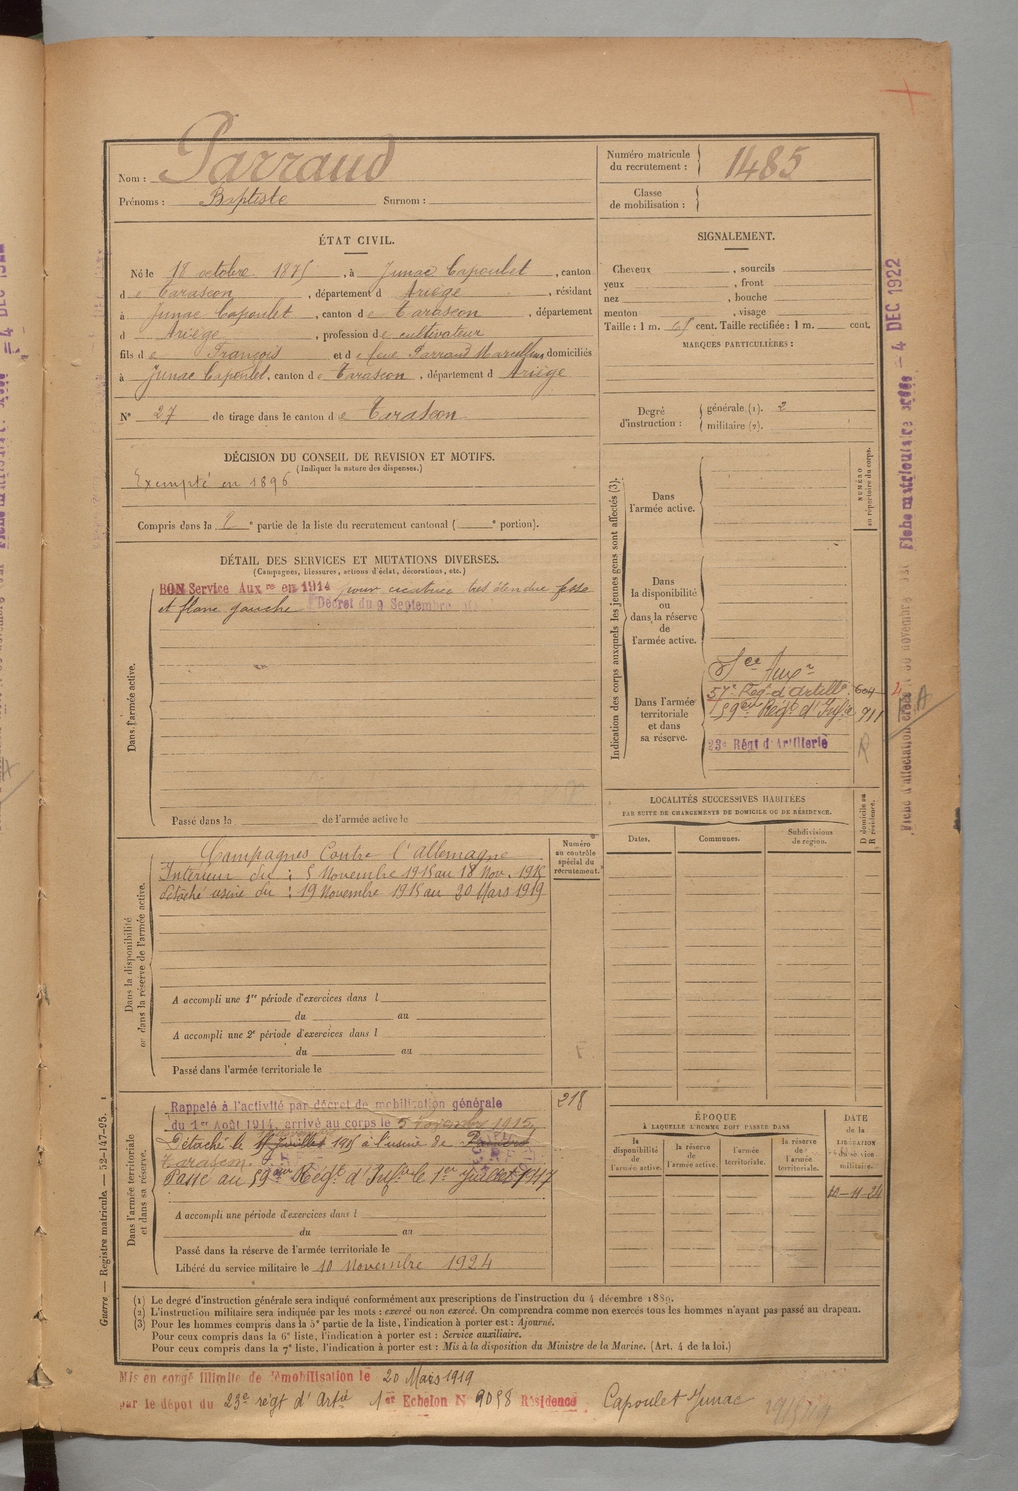 Nom : Parraud
Prénoms : Baptiste Surnom :
Numéro matricule du recrutement : 1485
Classe de mobilisation :
ÉTAT CIVIL.
Né le 18 octobre 1875, à Junac Capoulet, canton
de Tarascon, département d Ariège, résidant
à Junac Capoulet, canton de Tarascon, département
d Ariège, profession de cultivateur
fils de François et de feue Parraud Marcelline domiciliés
à Junac Capoulet, canton de Tarascon, département d Ariège
N° 27 de tirage dans le canton de Tarascon
SIGNALEMENT.
Cheveux , sourcils
yeux , front
nez , bouche
menton , visage
Taille : 1 m. cent. Taille rectifiée : 1 m. cent.
MARQUES PARTICULIÈRES :
Degré d'instruction : générale (1). 2
militaire (2).
DÉCISION DU CONSEIL DE REVISION ET MOTIFS.
(Indiquer la nature des dispenses.)
Exempté en 1896
Compris dans la e partie de la liste du recrutement cantonal ( e portion).
DÉTAIL DES SERVICES ET MUTATIONS DIVERSES.
(Campagnes, blessures, actions d'éclat, décorations, etc.)
BON Service Aux re en 1914 pour cicatrice très étendue fesse
et flanc gauche Décret du 9 Septembre
Dans l'armée active.
Passé dans la de l'armée active le
Indication des corps auxquels les jeunes gens sont affectés (3).
NUMÉRO au répertoire du corps.
Dans l'armée active.
Dans la disponibilité ou dans la réserve de l'armée active.
Dans l'armée territoriale et dans sa réserve.
Sce Auxre
57e Régt d'Artille. 604
59ème Régt d'Infie 911
23e Régt d'Artillerie
LOCALITÉS SUCCESSIVES HABITÉES
PAR SUITE DE CHANGEMENTS DE DOMICILE OU DE RÉSIDENCE.
Dates. Communes. Subdivisions de région. D domicile ou R résidence.
Numéro au contrôle spécial du recrutement.
Dans la disponibilité ou dans la réserve de l'armée active.
Campagnes Contre l'Allemagne
Intérieur du : 5 Novembre 1915 au 18 Nov. 1915
détaché usine du : 19 Novembre 1915 au 20 Mars 1919
A accompli une 1re période d'exercices dans l
du au
A accompli une 2e période d'exercices dans l
du au
Passé dans l'armée territoriale le
Dans l'armée territoriale et dans sa réserve.
218
Rappelé à l'activité par décret de mobilisation générale
du 1er Août 1914, arrivé au corps le 5 Novembre 1915,
Détaché le juillet 1915 à l'usine de Pamiers
Tarascon.
Passe au 59ème Régt. d'Infie le 1er Juillet 1917
A accompli une période d'exercices dans l
du au
Passé dans la réserve de l'armée territoriale le
Libéré du service militaire le 10 Novembre 1924
ÉPOQUE
À LAQUELLE L'HOMME DOIT PASSER DANS
la disponibilité de l'armée active. la réserve de l'armée active. l'armée territoriale. la réserve de l'armée territoriale.
DATE de la LIBÉRATION du service militaire.
10-11-24
(1) Le degré d'instruction générale sera indiqué conformément aux prescriptions de l'instruction du 4 décembre 1889.
(2) L'instruction militaire sera indiquée par les mots : exercé ou non exercé. On comprendra comme non exercés tous les hommes n'ayant pas passé au drapeau.
(3) Pour les hommes compris dans la 5e partie de la liste, l'indication à porter est : Ajourné.
Pour ceux compris dans la 6e liste, l'indication à porter est : Service auxiliaire.
Pour ceux compris dans la 7e liste, l'indication à porter est : Mis à la disposition du Ministre de la Marine. (Art. 4 de la loi.)
Mis en congé illimité de démobilisation le 20 Mars 1919
par le dépôt du 23e régt d'Artie 1er Echelon N° 9098 Résidence Capoulet Junac
Guerre — Registre matricule. — 52-1147-95.
Fiche matriculaire créée — 4 DEC 1922